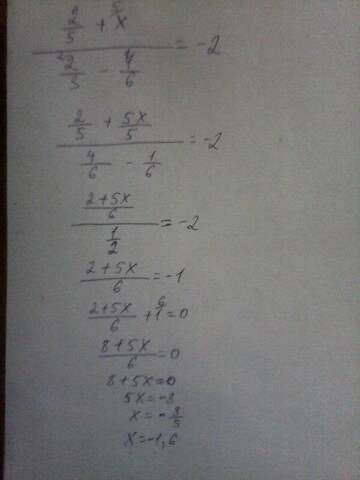 2/5 + x^5 / 2/3^2 - 4/6 = -2
2/5 + 5x/5 / 4/6 - 1/6 = -2
2+5x/6 / 1/2 = -2
2+5x/6 = -1
2+5x/6 + 1^6 = 0
8+5x/6 = 0
8+5x=0
5x=-8
x=-8/5
x=-1,6